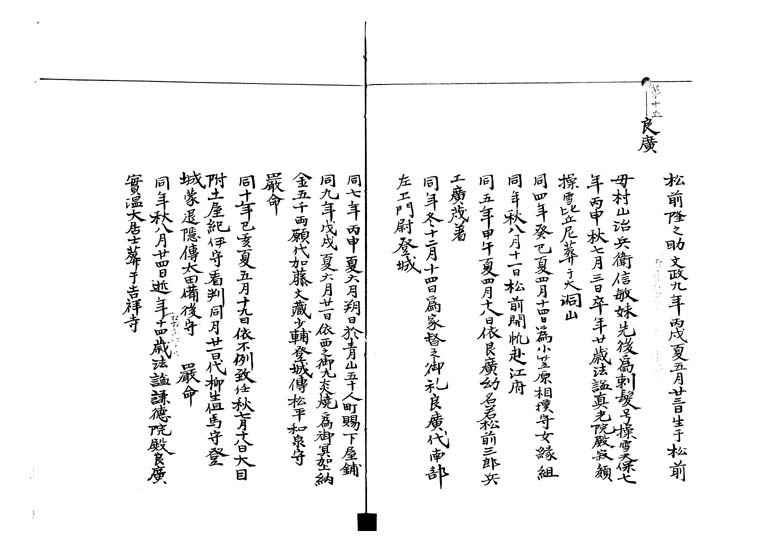 第十五
良廣
松前隆之助文政九年丙戌夏五月廿三日生于松前
母村山治兵衛信敏妹先後為剃髪号操雪天保七
年丙申秋七月三日卒年廿歳法諡真光院殿寂頞
操雪比丘尼葬于大洞山
同四年癸巳夏四月十四日為小笠原相摸守女縁組
同年秋八月十一日松前開帆赴江府
同五年甲午夏四月六日依良廣幼名若松前三郎兵
工廣茂著
同年冬十二月十四日為家督之御礼良廣代南部
左工門尉登城
同七年丙申夏六月朔日於青山五十人町賜下屋鋪
同九年戊戌夏六月廿一日依西之御丸炎焼為御冥加上納
金五千両願代加藤文藏少輔登城傳松平和泉守
嚴命
同十年己亥夏五月十九日依不例致仕秋七月十八日大目
附土屋紀伊守看判同月廿一日代柳生但馬守登
城蒙退隠傳太田備後守 嚴命
同年秋八月廿四日逝年十四歳法諡謙德院殿良廣
實温大居士葬于吉祥寺